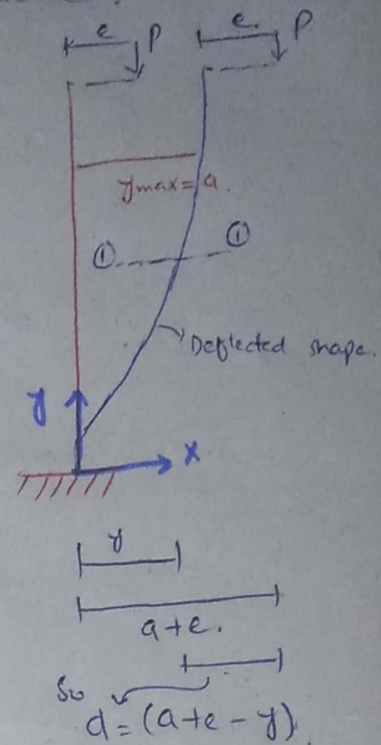 e P e. P
ymax = a.
① ①
Deflected shape.
y
x
y
a+e.
So
d = (a+e - y)